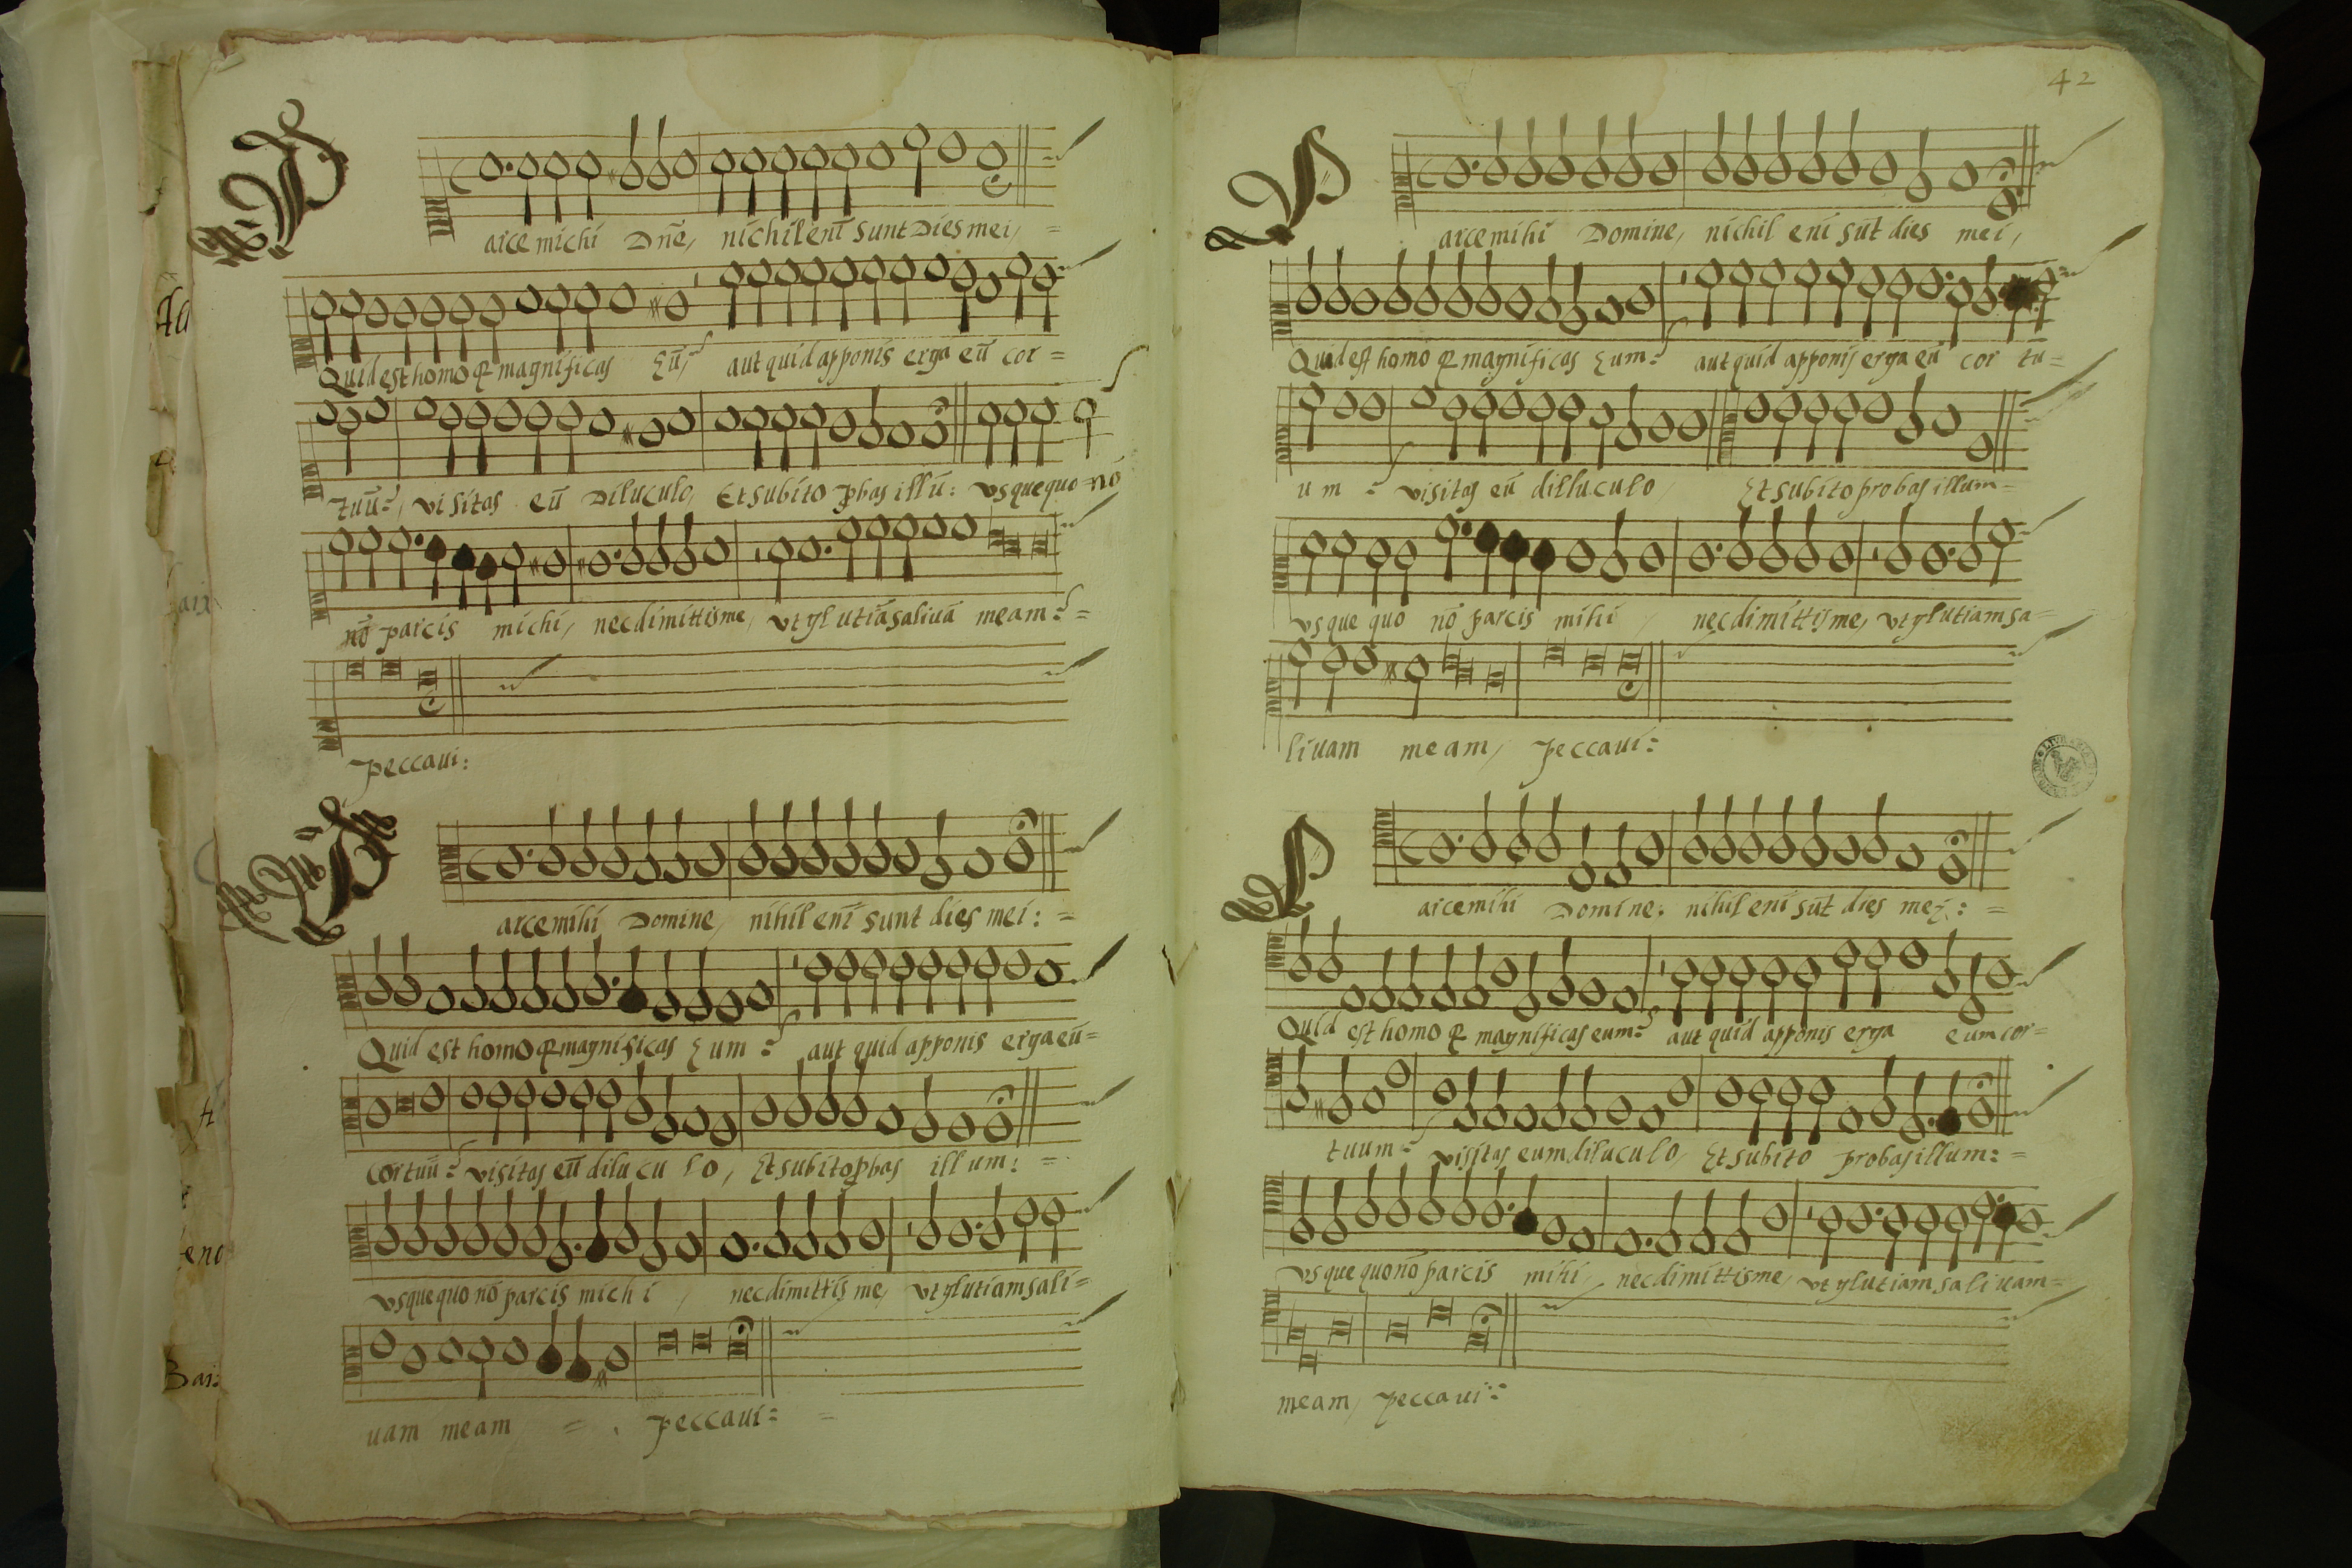 Parce michi Dñe, nichil enĩ sunt Dies mei,
Quid est homo q magnificas Eũ, aut quid apponis erga eũ cor =
tuũ: visitas eũ Diluculo, Et subito pbas illũ: Vsquequo nõ
nõ parcis michi, nec dimittis me, vt glutiã saliuã meam: =
Peccaui:
Parce mihi Domine, nihil enĩ sunt dies mei: =
Quid est homo q magnificas Eum: aut quid apponis erga eũ =
Cor tuũ: visitas eũ dilucu lo, Et subito pbas illum: =
vsquequo nõ parcis michi, nec dimittis me, vt glutiam sali =
uam meam = Peccaui: =
42
Parce mihi Domine, nichil enĩ sũt dies mei,
Quid est homo q magnificas Eum: aut quid apponis erga eũ cor tu =
um: visitas eũ dilluculo, Et subito probas illum =
vsque quo nõ parcis mihi, nec dimittis me, vt glutiam sa =
liuam meam, Peccaui:
Parce mihi Domine: nihil enĩ sũt dies mei: =
Quid est homo q magnificas eum: aut quid apponis erga eum cor =
tuum: visitas eum diluculo, Et subito probas illum: =
vsque quo nõ parcis mihi, nec dimittis me, vt glutiam saliuam =
meam, Peccaui: